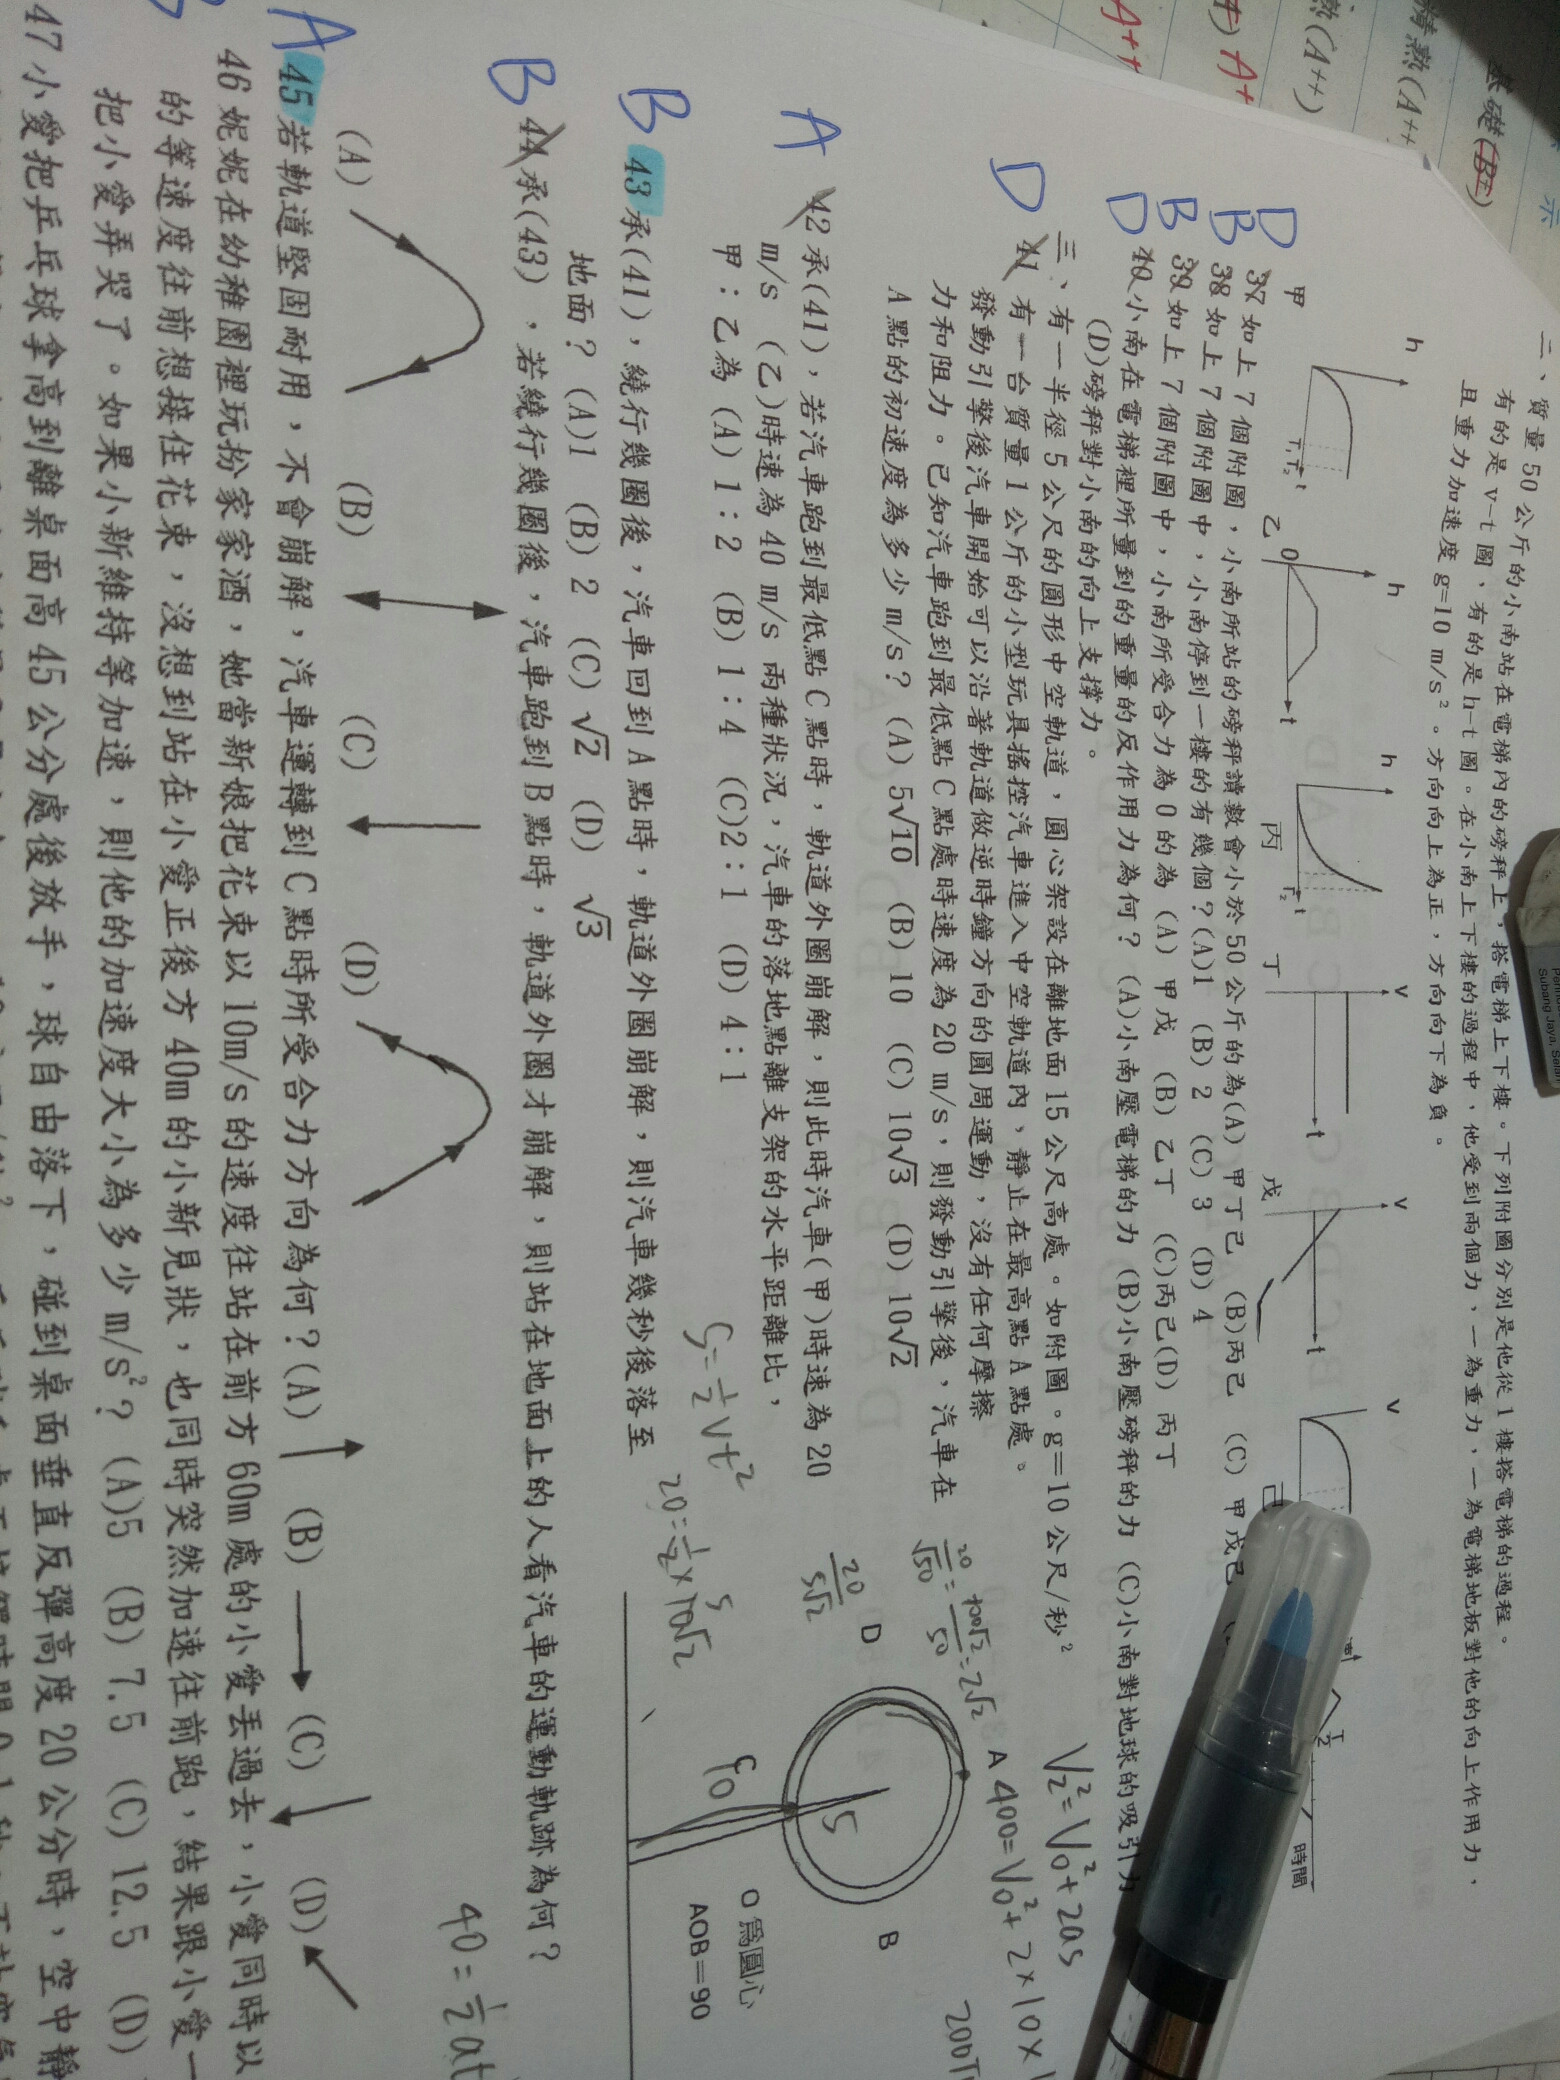 二、質量50公斤的小南站在電梯內的磅秤上,搭電梯上下樓。下列附圖分別是他從1樓搭電梯的過程。
有的是v-t圖、有的是h-t圖。在小南上下樓的過程中,他受到兩個力、一為重力、一為電梯地板對他的向上作用力,
且重力加速度g=10 m/s²。方向向上為正,方向向下為負。
甲 h t T₁T₂
乙 h 0 t
丙 h t T₂
丁 v t
戊 v t
己 v
時間
D 37 如上7個附圖,小南所站的磅秤讀數會小於50公斤的為(A) 甲丁己 (B)丙己 (C) 甲戊己
B 38 如上7個附圖中,小南停到一樓的有幾個?(A)1 (B) 2 (C) 3 (D) 4
B 39 如上7個附圖中,小南所受合力為0的為 (A) 甲戊 (B) 乙丁 (C)丙己(D) 丙丁
D 40 小南在電梯裡所量到的重量的反作用力為何? (A)小南壓電梯的力 (B)小南壓磅秤的力 (C)小南對地球的吸引力
(D)磅秤對小南的向上支撐力。
三、有一半徑5公尺的圓形中空軌道,圓心架設在離地面15公尺高處。如附圖。g=10公尺/秒²
D 41 有一台質量1公斤的小型玩具搖控汽車進入中空軌道內,靜止在最高點A點處。
發動引擎後汽車開始可以沿著軌道做逆時鐘方向的圓周運動,沒有任何摩擦
力和阻力。已知汽車跑到最低點C點處時速度為20 m/s,則發動引擎後,汽車在
A點的初速度為多少m/s? (A) 5√10 (B) 10 (C) 10√3 (D) 10√2
A 42 承(41),若汽車跑到最低點C點時,軌道外圈崩解,則此時汽車(甲)時速為20
m/s (乙)時速為40 m/s 兩種狀況,汽車的落地點離支架的水平距離比,
甲:乙為 (A) 1:2 (B) 1:4 (C)2:1 (D) 4:1
B 43 承(41),繞行幾圈後,汽車回到A點時,軌道外圈崩解,則此時汽車幾秒後落至
地面? (A)1 (B) 2 (C) √2 (D) √3
B 44 承(43),若繞行幾圈後,汽車跑到B點時,軌道外圈才崩解,則站在地面上的人看汽車的運動軌跡為何?
(A) (B) (C) (D)
A 45 若軌道堅固耐用,不會崩解,汽車運轉到C點時所受合力方向為何?(A) (B) (C) (D)
46 妮妮在幼稚園裡玩扮家家酒,她當新娘把花束以10m/s的速度往站在前方60m處的小愛丟過去,小愛同時以
的等速度往前想接住花束,沒想到站在小愛正後方40m的小新見狀,也同時突然加速往前跑,結果跟小愛一
把小愛弄哭了。如果小新維持等加速,則他的加速度大小為多少m/s²? (A)5 (B) 7.5 (C) 12.5 (D)
47 小愛把乒乓球拿高到離桌面高45公分處後放手,球自由落下,碰到桌面垂直反彈高度20公分時,空中靜
A
B
C
D
5
10
O為圓心
AOB=90
V₂²=V₀²+2as
400=V₀²+2×10×
5=½Vt²
20=½×10√2
20/√50 = 20√2/50 = 2√2
20/5√2
40=½at